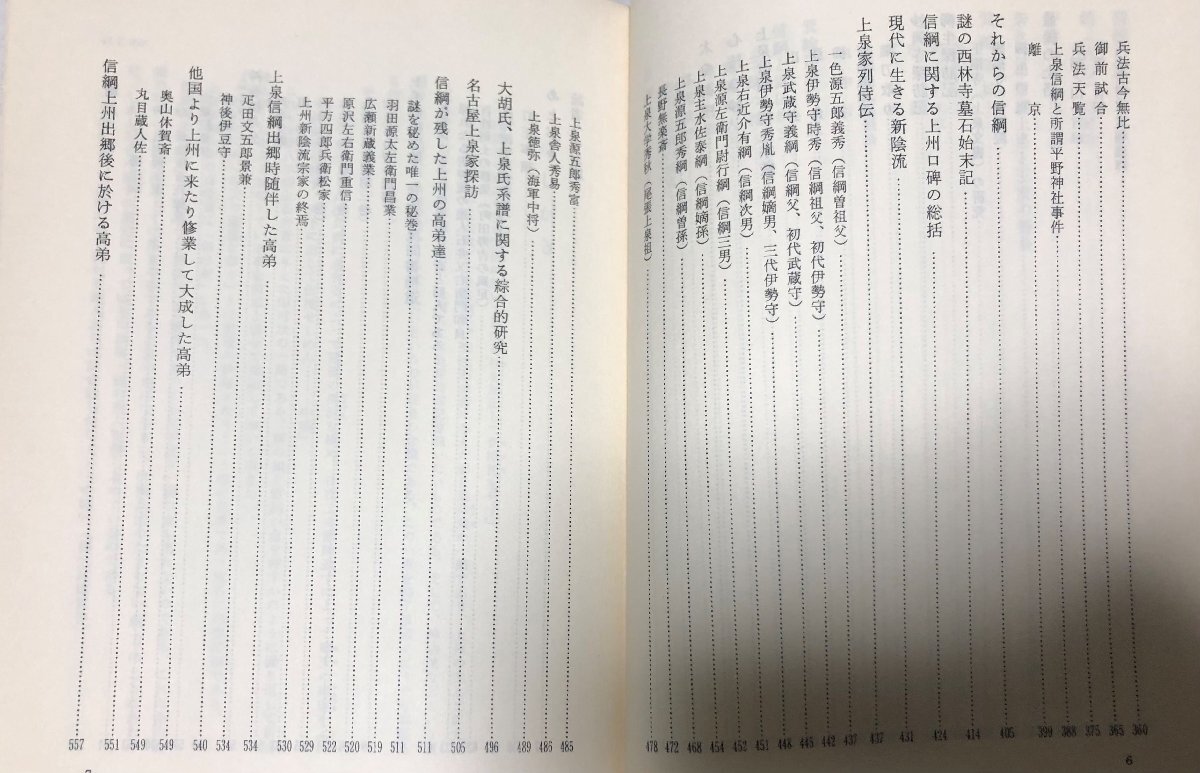 兵法古今無比……360
御前試合……365
兵法天覧……375
上泉信綱と所謂平野神社事件……388
離京……399
それからの信綱……405
謎の西林寺墓石始末記……414
信綱に関する上州口碑の総括……424
現代に生きる新陰流……431
上泉家列侍伝……437
一色源五郎義秀（信綱曽祖父）……437
上泉伊勢守時秀（信綱祖父、初代伊勢守）……442
上泉武蔵守義綱（信綱父、初代武蔵守）……445
上泉伊勢守秀胤（信綱嫡男、三代伊勢守）……448
上泉右近介有綱（信綱次男）……451
上泉源左衛門尉行綱（信綱三男）……452
上泉主水佐泰綱（信綱嫡孫）……454
上泉源五郎秀綱（信綱曽孫）……468
長野無楽斎……472
上泉大学秀秋（尾張上泉祖）……478
6
上泉源五郎秀富……485
上泉舎人秀易……486
上泉徳弥（海軍中将）……489
大胡氏、上泉氏系譜に関する綜合的研究……496
名古屋上泉家探訪……505
信綱が残した上州の高弟達……511
謎を秘めた唯一の秘巻……511
羽田源太左衛門昌業……519
広瀬新蔵義業……520
原沢左右衛門重信……522
平方四郎兵衛松家……529
上州新陰流宗家の終焉……530
上泉信綱出郷時随伴した高弟……534
疋田文五郎景兼……534
神後伊豆守……540
他国より上州に来たり修業して大成した高弟……549
奥山休賀斎……549
丸目蔵人佐……551
信綱上州出郷後に於ける高弟……557